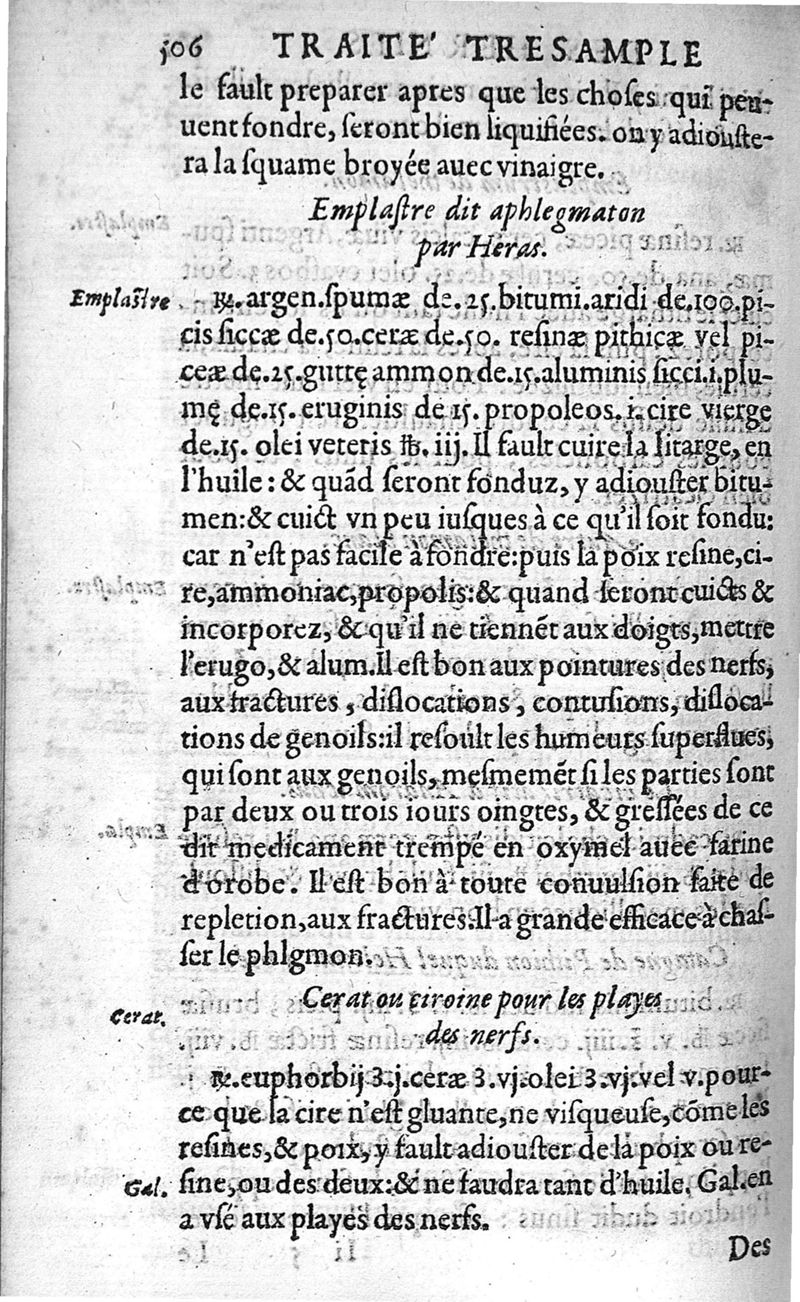 506 TRAITE' TRESAMPLE
le fault preparer apres que les choſes qui peu-
uent fondre, ſeront bien liquifiées. on y adiouſte-
ra la ſquame broyée auec vinaigre.
Emplaſtre dit aphlegmaton
par Heras.
Emplaſtre
℞.argen.ſpumæ de.25.bitumi.aridi de.100.pi-
cis ſiccæ de.50.ceræ de.50. reſinæ pithicæ vel pi-
ceæ de.25.guttę ammon de.15.aluminis ſicci.i.plu-
mę de.15. eruginis de 15. propoleos.i.cire vierge
de.15. olei veteris ℔. iij. Il fault cuire la litarge, en
l'huile: & quād ſeront fonduz, y adiouſter bitu-
men:& cuict vn peu iuſques à ce qu'il ſoit fondu:
car n'eſt pas facile à fondre:puis la poix reſine,ci-
re,ammoniac,propolis:& quand ſeront cuicts &
incorporez, & qu'il ne tiennẽt aux doigts,mettre
l'erugo,& alum.Il eſt bon aux pointures des nerfs,
aux fractures, diſlocations, contuſions, diſloca-
tions de genoils:il reſoult les humeurs ſuperflues,
qui ſont aux genoils, meſmemẽt ſi les parties ſont
par deux ou trois iours oingtes, & greſſées de ce
dit medicament trempé en oxymel auec farine
d'orobe. Il eſt bon à toute conuulſion faite de
repletion,aux fractures.Il a grande efficace à chaſ-
ſer le phlgmon.
Cerat ou ciroine pour les playes
des nerfs.
Cerat.
℞.euphorbij ʒ.j.ceræ ʒ.vj.olei ʒ.vj.vel v.pour-
ce que la cire n'eſt gluante,ne viſqueuſe,cōme les
reſines,& poix, y fault adiouſter de la poix ou re-
Gal. ſine,ou des deux:& ne faudra tant d'huile. Gal.en
a vſé aux playes des nerfs.
Des